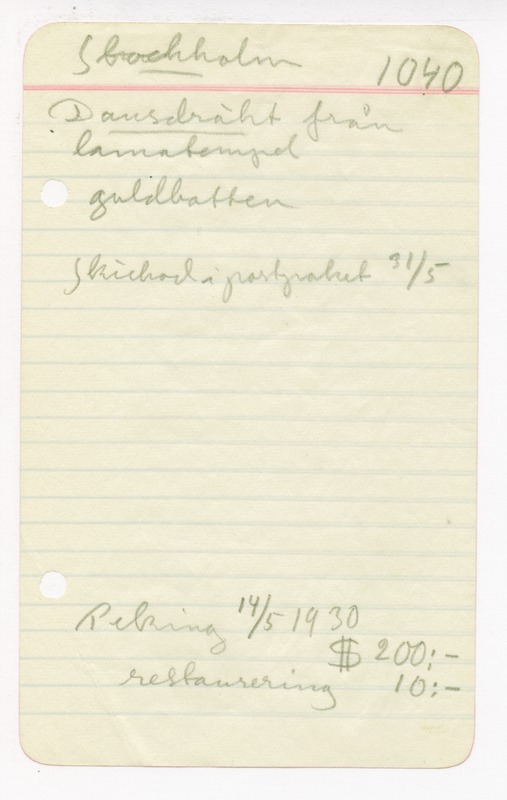 Stockholm 1040
Dansdräkt från
lamatempel
guldbotten
Skickad i postpaket 31/5
Peking 14/5 1930
$ 200:-
restaurering 10:-